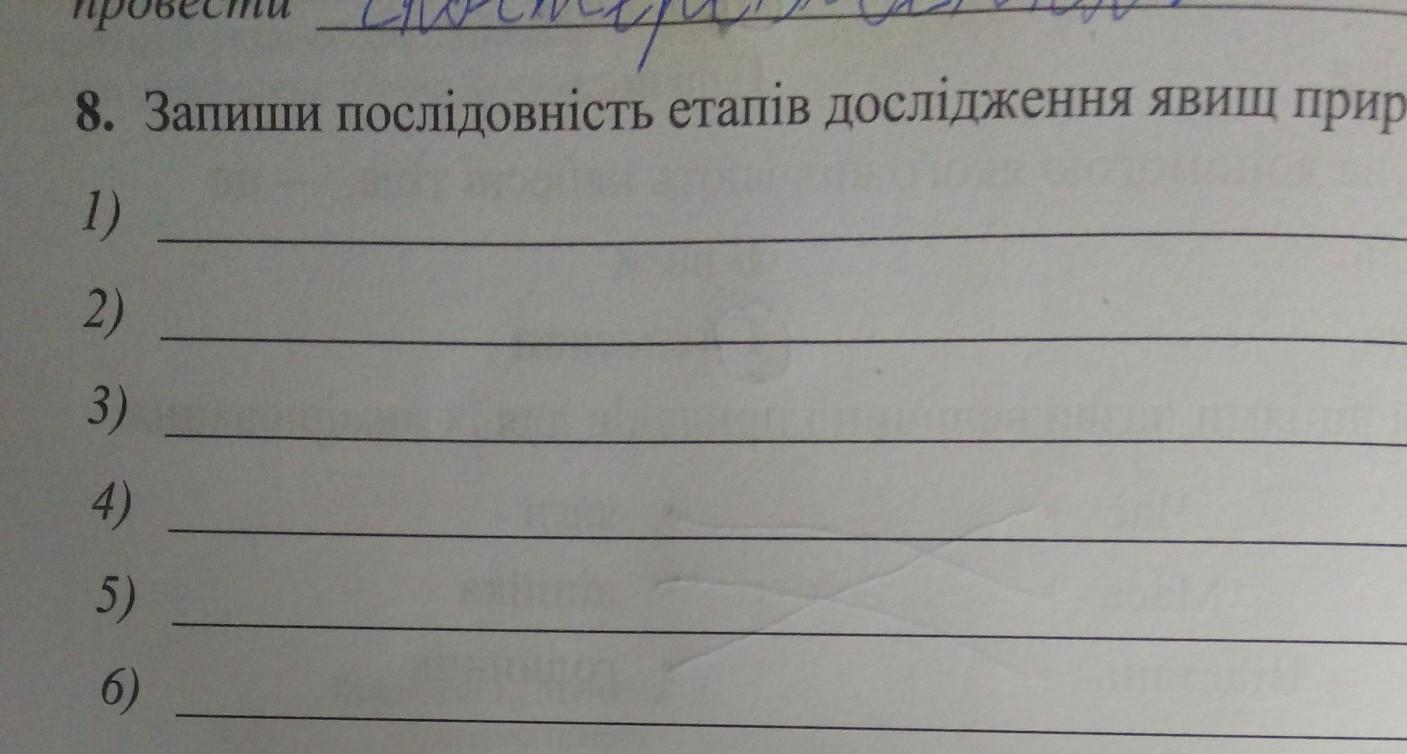 провести
8. Запиши послідовність етапів дослідження явищ прир
1)
2)
3)
4)
5)
6)